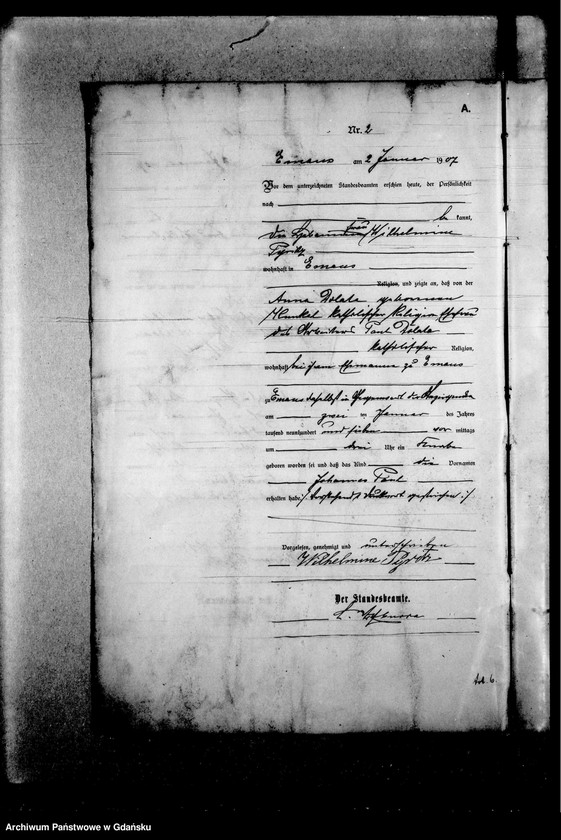 A.
Nr. 2
Emaus am 2 Januar 1907
Vor dem unterzeichneten Standesbeamten erschien heute, der Persönlichkeit
nach
be kannt,
die Hebamme Frau Wilhelmine
wohnhaft in Emaus
Religion, und zeigte an, daß von der
Anna Dolata geborenen
Kunkel katholischer Religion, Ehefrau
des Arbeiters Paul Dolata
katholischer Religion,
wohnhaft bei ihrem Ehemanne zu Emaus
zu Emaus daselbst in Gegenwart der Anzeigenden
am zwei ten Januar des Jahres
tausend neunhundert und sieben vor mittags
um drei Uhr ein Knabe
geboren worden sei und daß das Kind die Vornamen
Johannes Paul
erhalten habe. Vorstehend Druckwort gestrichen
Vorgelesen, genehmigt und unterschrieben
Wilhelmine
Der Standesbeamte.
Archiwum Państwowe w Gdańsku